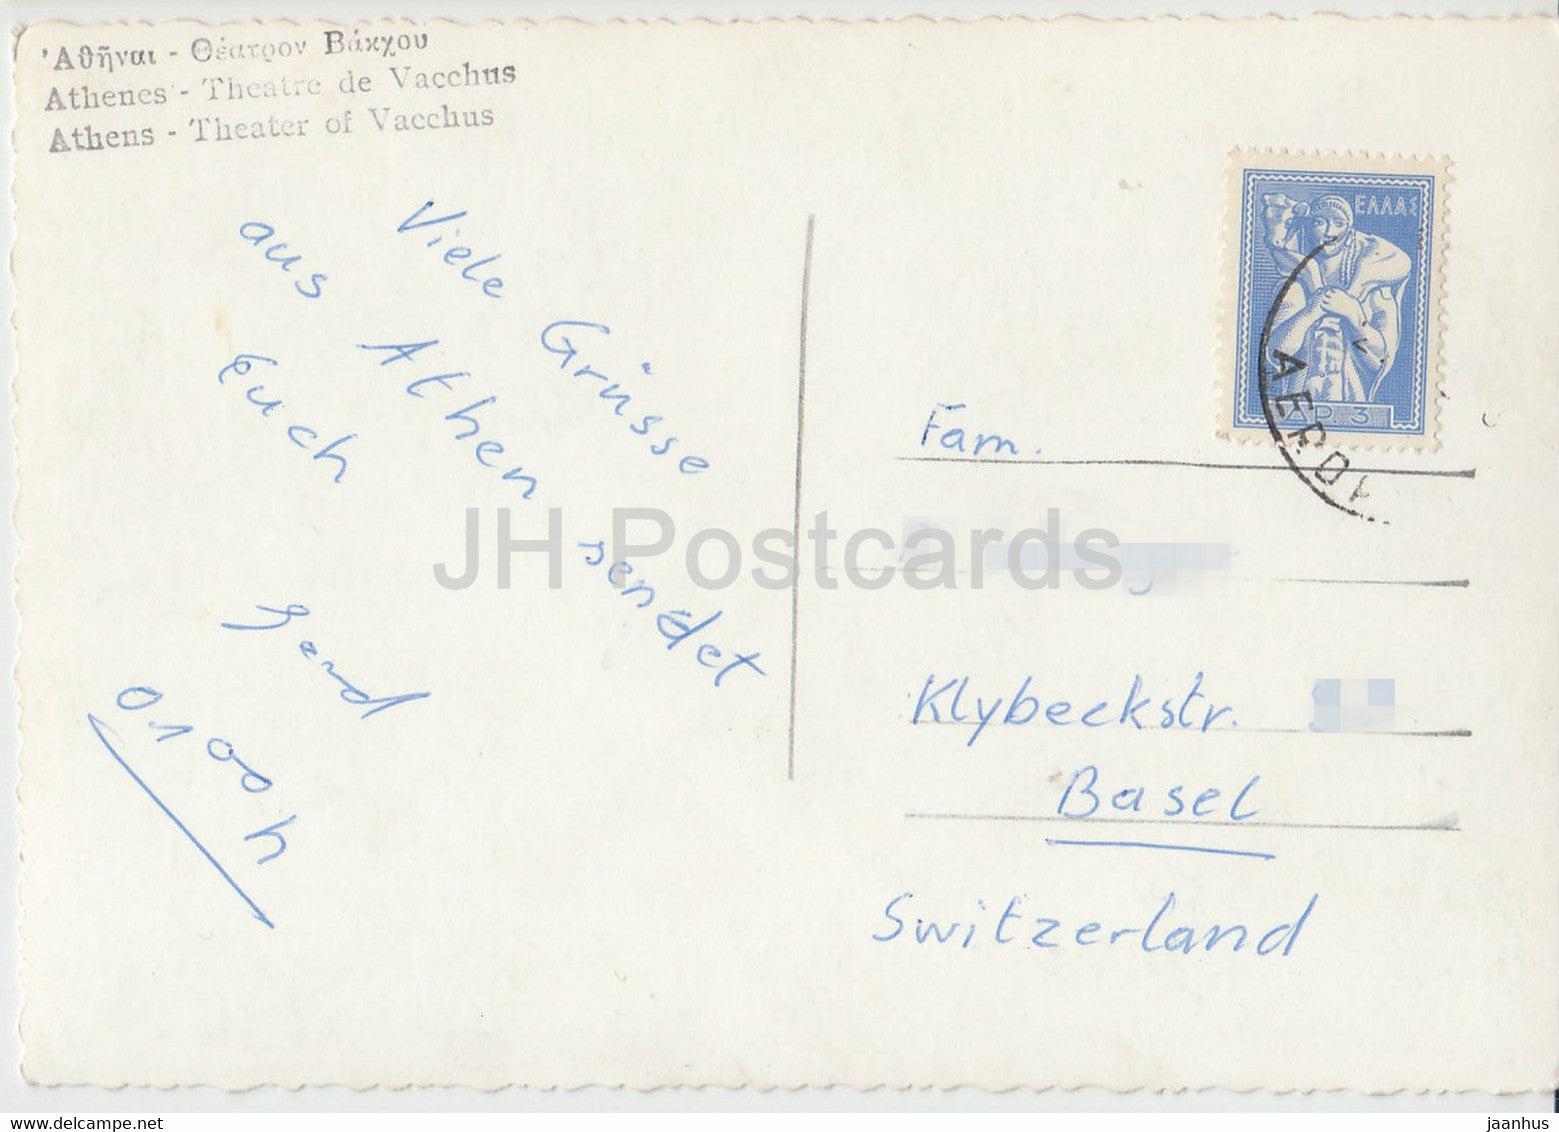 Ἀθῆναι - Θέατρον Βάκχου
Athenes - Theatre de Vacchus
Athens - Theater of Vacchus
Viele Grüsse
aus Athen sendet
Euch
0100h
ΕΛΛΑΣ
ΔΡ. 3
AEROΔ
Fam.
Klybeckstr.
Basel
Switzerland
JH Postcards
www.delcampe.net
jaanhus